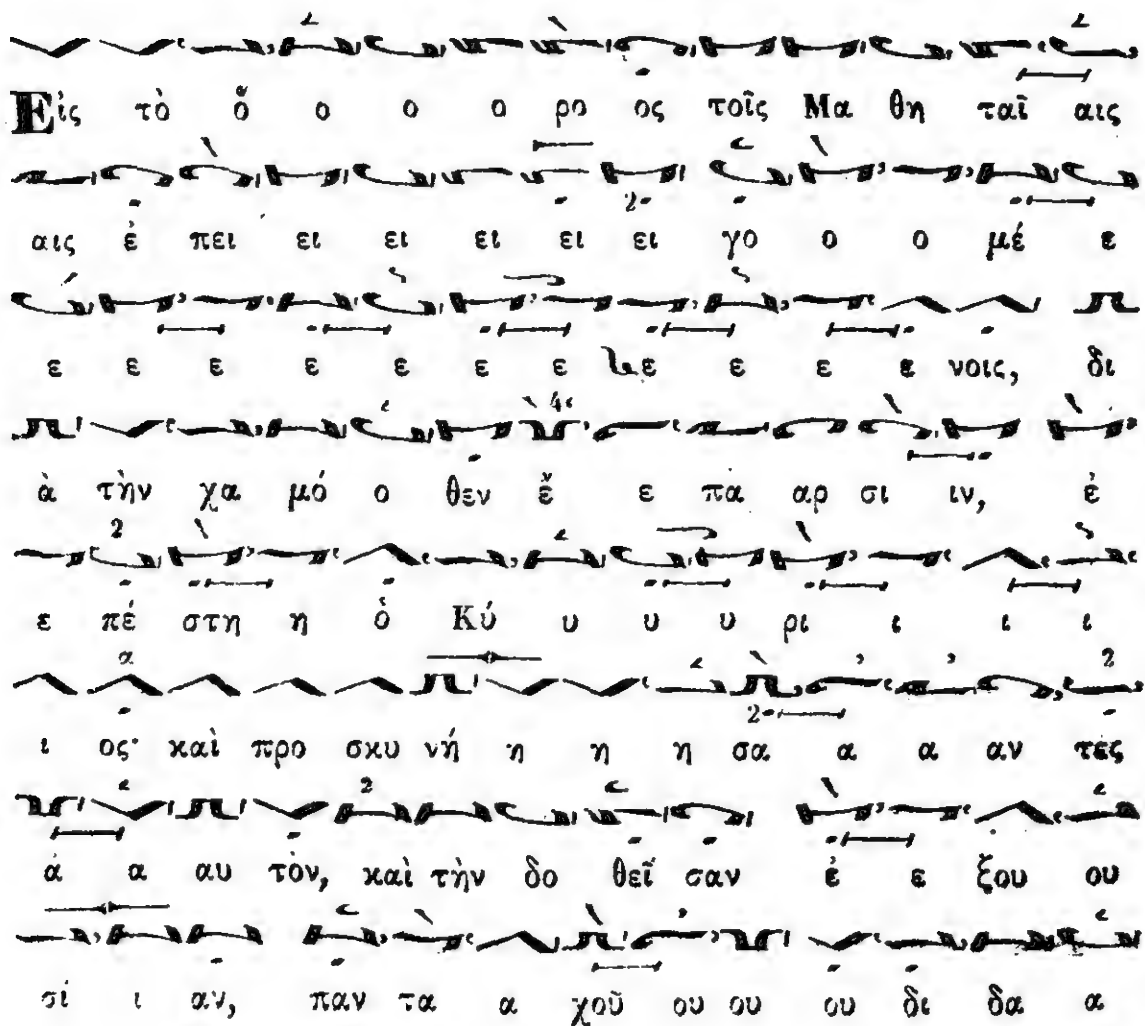 Εἰς τὸ ὄ ο ο ο ρο ος τοῖς Μα θη ταῖ αις
αις ἐ πει ει ει ει ει ει γο ο ο μέ ε
ε ε ε ε ε ε ε ε ε ε ε νοις, δι
ὰ τὴν χα μό ο θεν ἔ ε πα αρ σι ιν, ἐ
ε πέ στη η ὁ Κύ υ υ υ ρι ι ι ι
ι ος· καὶ προ σκυ νή η η η σα α α αν τες
ἁ α αυ τὸν, καὶ τὴν δο θεῖ σαν ἐ ε ξου ου
σί ι αν, παν τα α χοῦ ου ου ου δι δα α